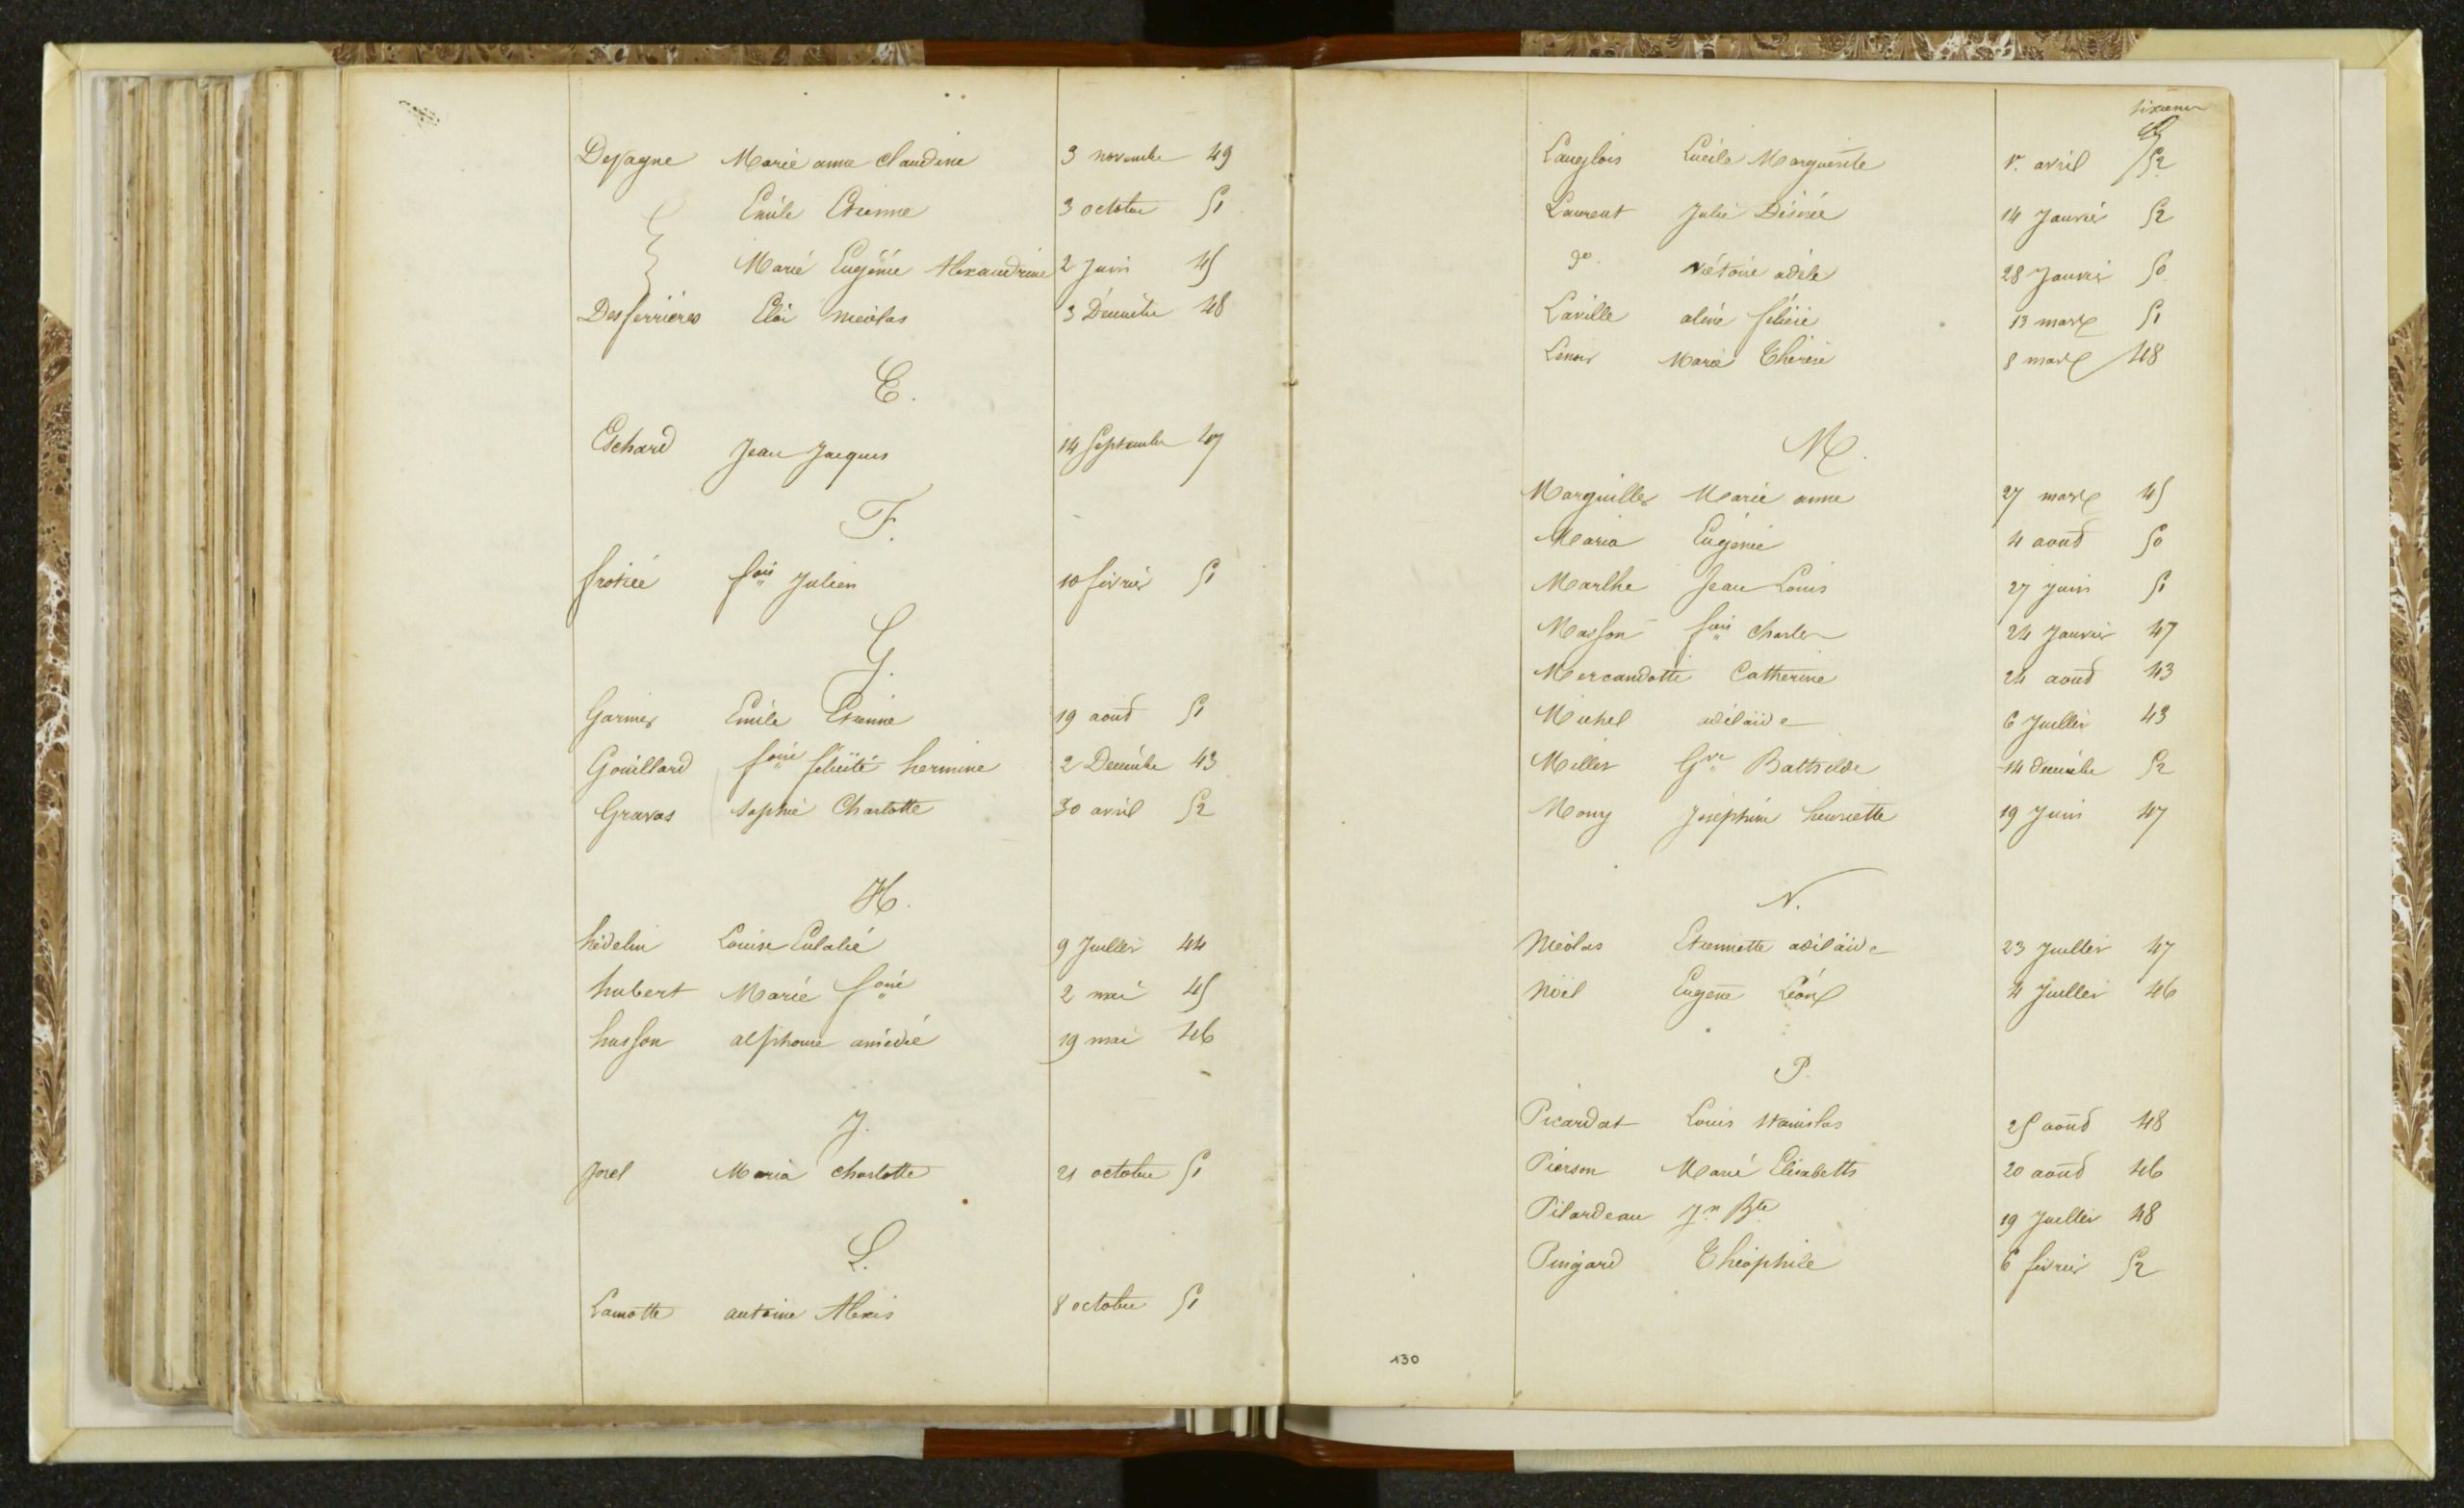 Depagne Marie anne Claudine 3 novembre 49
Emile Etienne 3 octobre 51
Marie Eugénie Alexandrine 2 Juin 45
Desferrières Eloi nicolas 3 Décembre 48
E.
Eschard Jean Jacques 14 Septembre 47
F.
frotiée fois Julien 10 février 51
G.
Garnier Emile Etienne 19 aout 51
Gouillard foise félicité hermine 2 Décembre 43
Gravas Sophie Charlotte 30 avril 52
H.
hédelin Louise Eulalie 9 Juillet 44
hubert Marie foise 2 mai 45
husson alphonse amédée 19 mai 46
J.
Jorel Maria Charlotte 21 octobre 51
L.
Lamotte antoine Alexis 8 octobre 51
sixième
Langlois Lucile Marguerite 1er avril 52
Laurent Julie Désirée 14 Janvier 52
do victoire adèle 28 Janvier 50
Laville aline félicie 13 mars 51
Lenoir Marie Thérèse 8 mars 48
M.
Marguillier Marie anne 27 mars 45
Maria Eugénie 4 aout 50
Marlhe Jean Louis 27 juin 51
Masson fois Charles 24 Janvier 47
Mercandotte Catherine 24 aout 43
Michel adélaïde 6 Juillet 43
Miller Gve Bathilde 14 décembre 52
Mony Joséphine henriette 19 Juin 47
N.
Nicolas Etiennette adélaïde 23 Juillet 47
Noël Eugène Léon 4 Juillet 46
P.
Picardat Louis Stanislas 25 aout 48
Pierson Marie Elisabeth 20 aout 46
Pilardeau Jn Bte 19 Juillet 48
Pingard Théophile 6 février 52
130